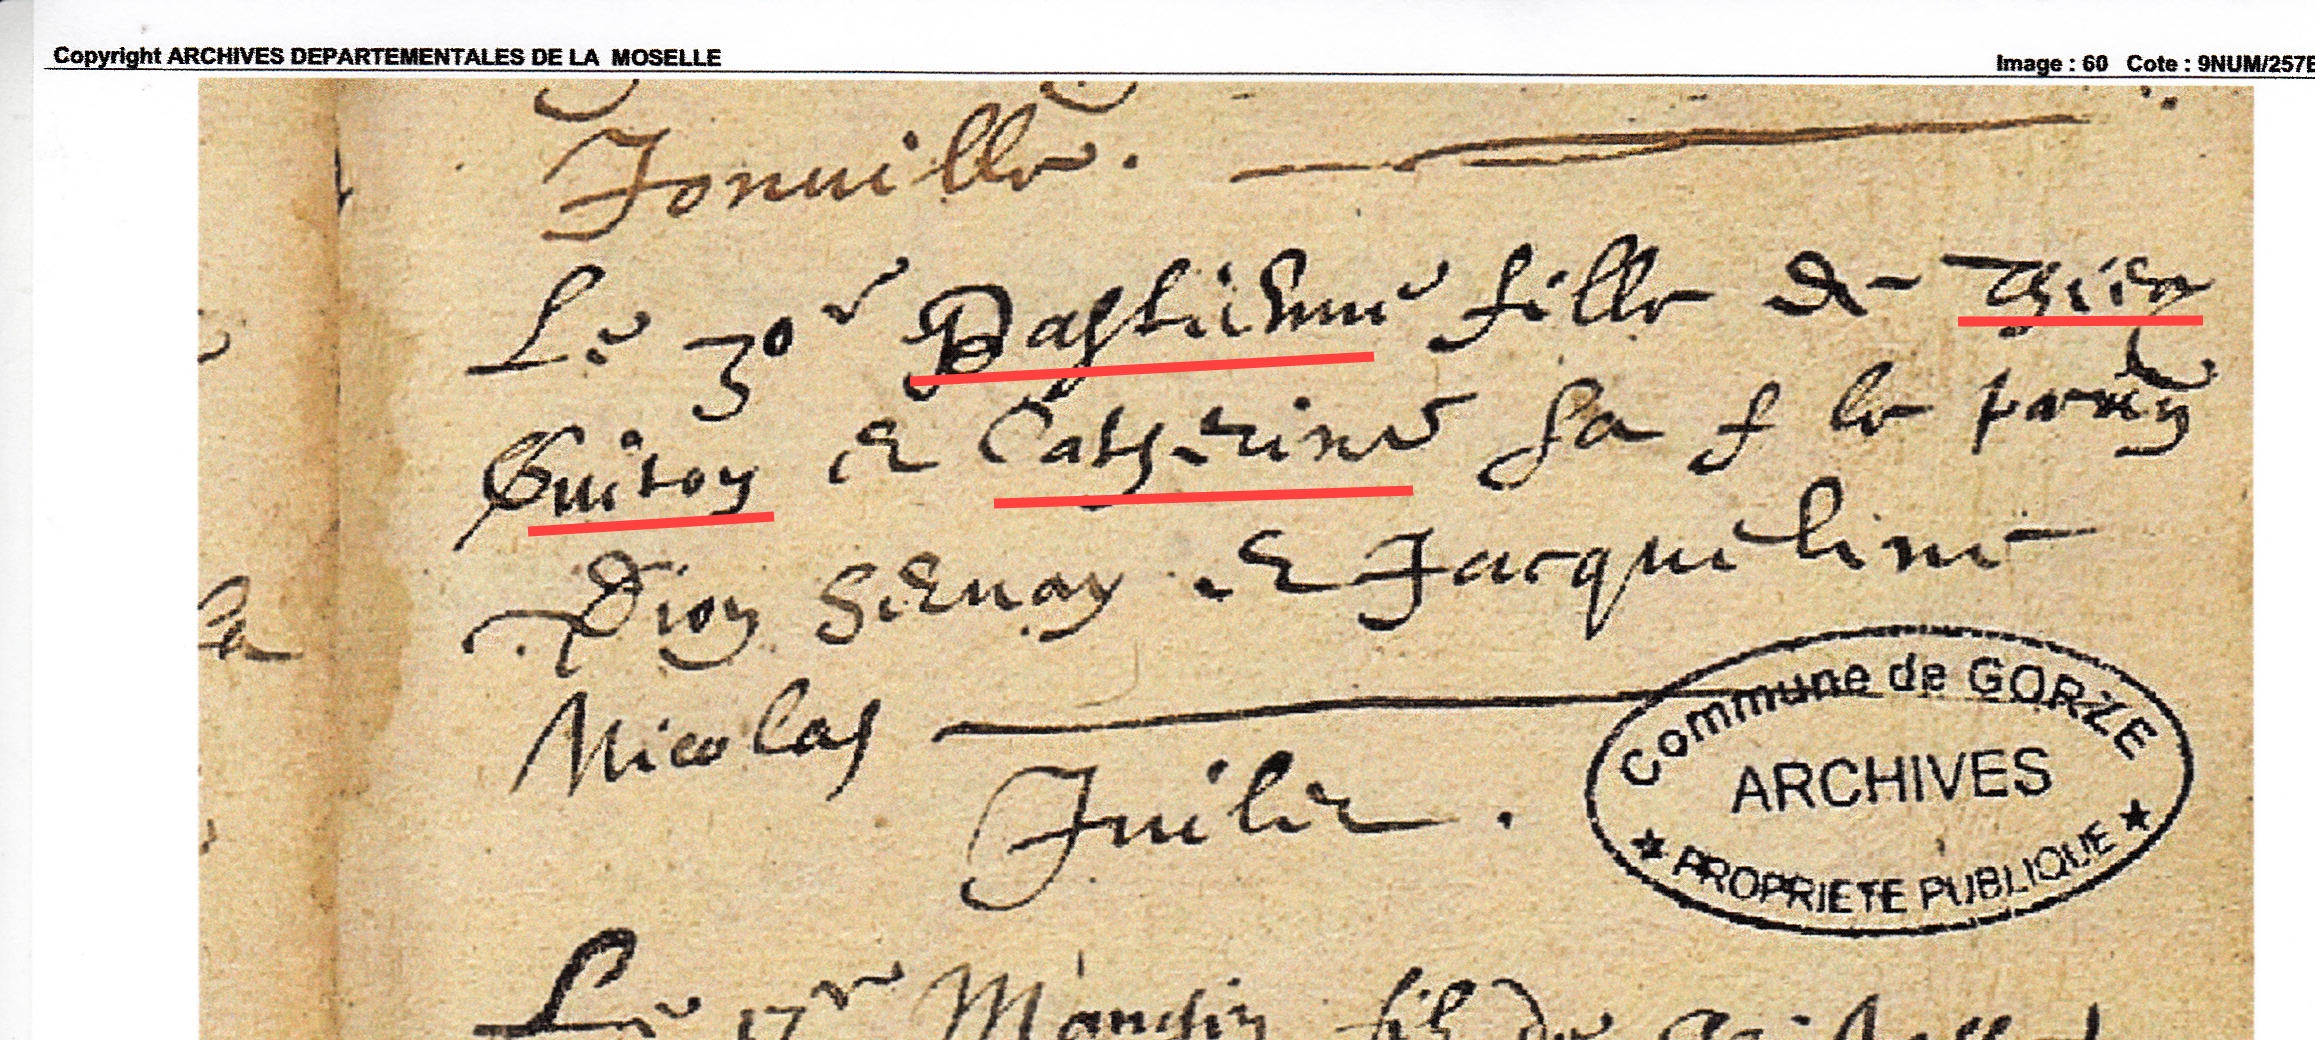 Copyright ARCHIVES DEPARTEMENTALES DE LA MOSELLE
Image : 60 Cote : 9NUM/257E
Jonville .
Le 30e Bastienne fille de
Guiton et Catherine sa f le parin
Dion et Jacqueline
Nicolas
Juilet .
Commune de GORZE
ARCHIVES
★ PROPRIETE PUBLIQUE ★
Le 17e fils de